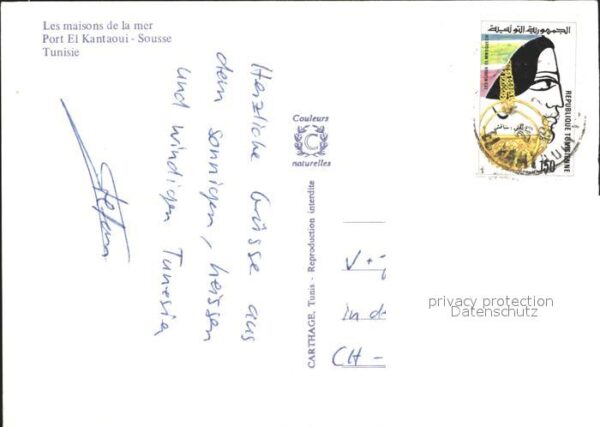 Les maisons de la mer
Port El Kantaoui - Sousse
Tunisie
Herzliche Grüsse aus
dem sonnigen, heissen
und windigen Tunesia
Stefan
Couleurs
C
naturelles
CARTHAGE, Tunis - Reproduction interdite
الجمهورية التونسية
REPUBLIQUE TUNISIENNE
150
in de
CH -
privacy protection
Datenschutz